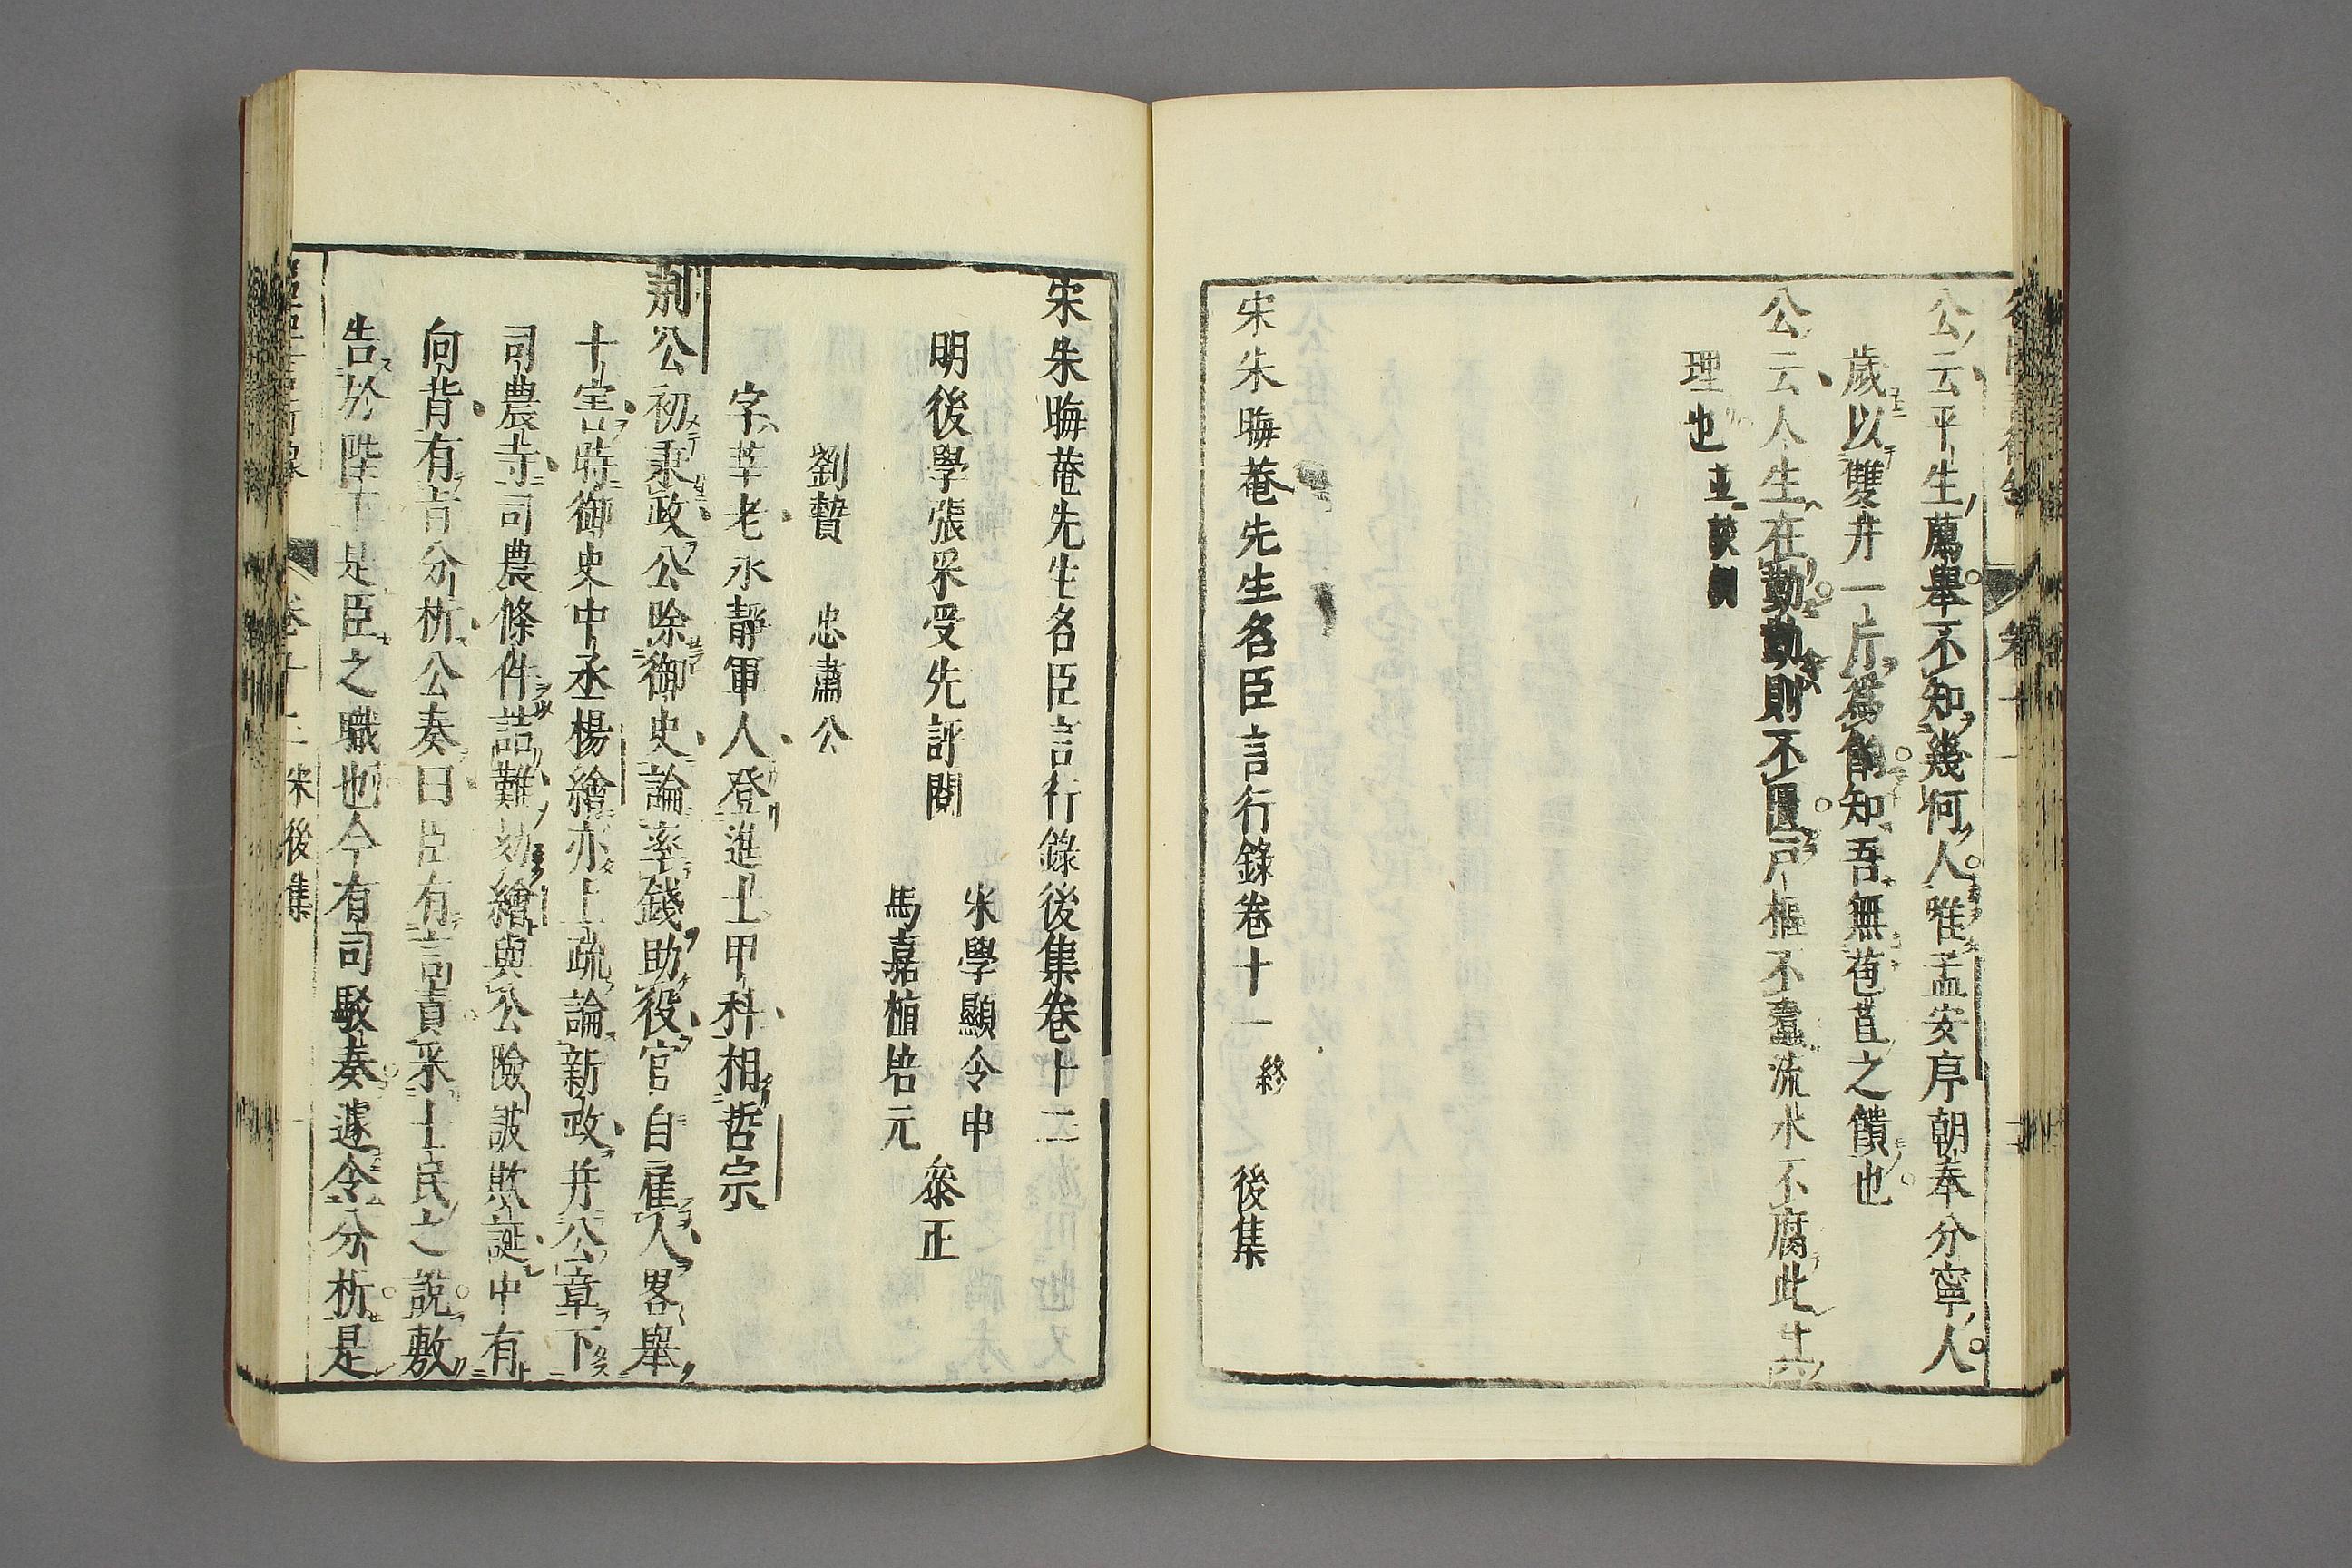 公云平生薦舉不知幾何人唯孟安序朝奉分寧人
歲以雙井一斤爲餉知吾無苞苴之饋也
公云人生在勤勤則不匱戸樞不蠹流水不腐此其
理也並談訓
宋朱晦菴先生名臣言行錄卷十一 終 後集
宋朱晦菴先生名臣言行錄後集卷十二
宋學顯令申
明後學張采受先評閱
馬嘉植培元
叅正
劉摯 忠肅公
字莘老永靜軍人登進士甲科相哲宗
荆公初秉政公除御史論率錢助役官自雇人畧舉
十害時御史中丞楊繪亦上疏論新政幷公章下
司農寺司農條件詰難劾繪與公險詖欺誕中有
向背有旨分析公奏曰臣有言責采士民之說敷
告於陛下是臣之職也今有司駁奏遽令分析是
卷十二 宋後集